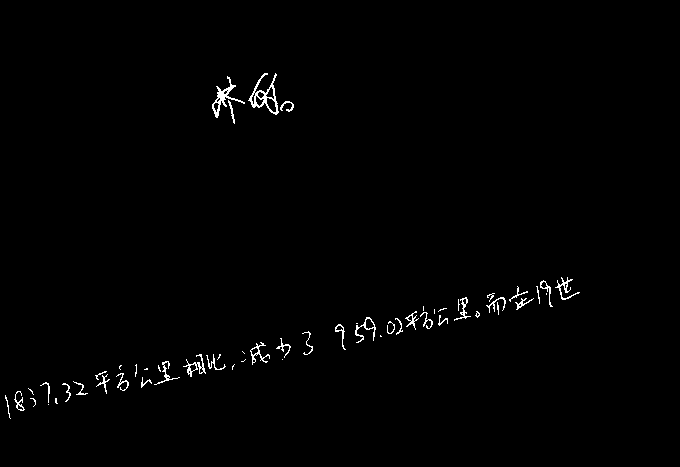 的。
1837.32平方公里相比,减少了 959.02平方公里。而在19世